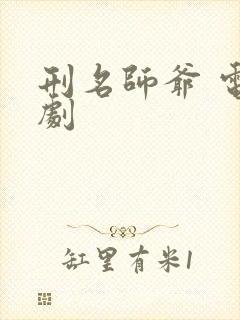 刑名師爺 電
劇
缸里有米1